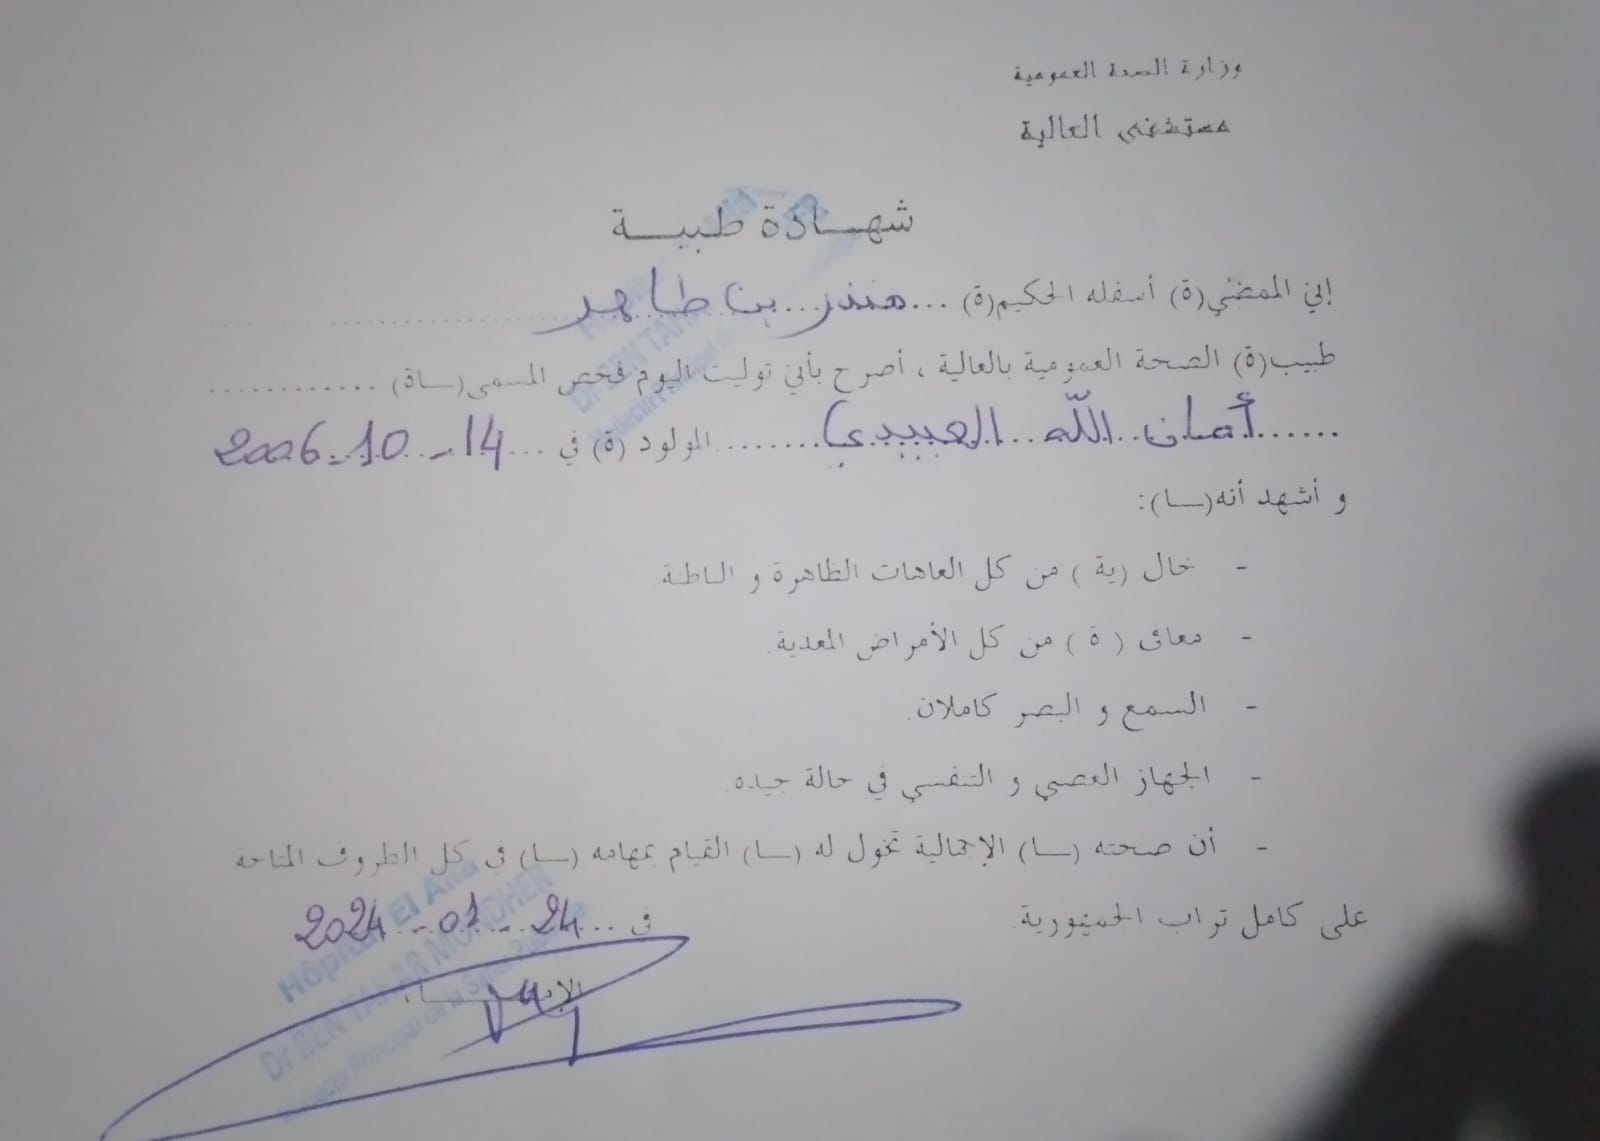 وزارة الصحة العمومية
مستشفى العالية
شهادة طبية
إني الممضي(ة) أسفله الحكيم(ة) ... منذر بن طاهر
طبيب(ة) الصحة العمومية بالعالية ، أصرح بأني توليت اليوم فحص المسمى(ـاة) ............
....... أمان الله العبيدي ....... المولود (ة) في ... 14 - 10 - 2006
و أشهد أنه(ـا):
- خال (ية ) من كل العاهات الظاهرة و الباطنة.
- معافى ( ة ) من كل الأمراض المعدية.
- السمع و البصر كاملان.
- الجهاز العصبي و التنفسي في حالة جيده.
- أن صحته (ـا) الإجمالية تخول له (ـا) القيام بمهامه (ـا) في كل الظروف المتاحة
على كامل تراب الجمهورية.
في ... 24 - 01 - 2024
الإمضاء
Hôpital El Alia
Dr BEN TAHAR MONDHER
Principal de la Santé